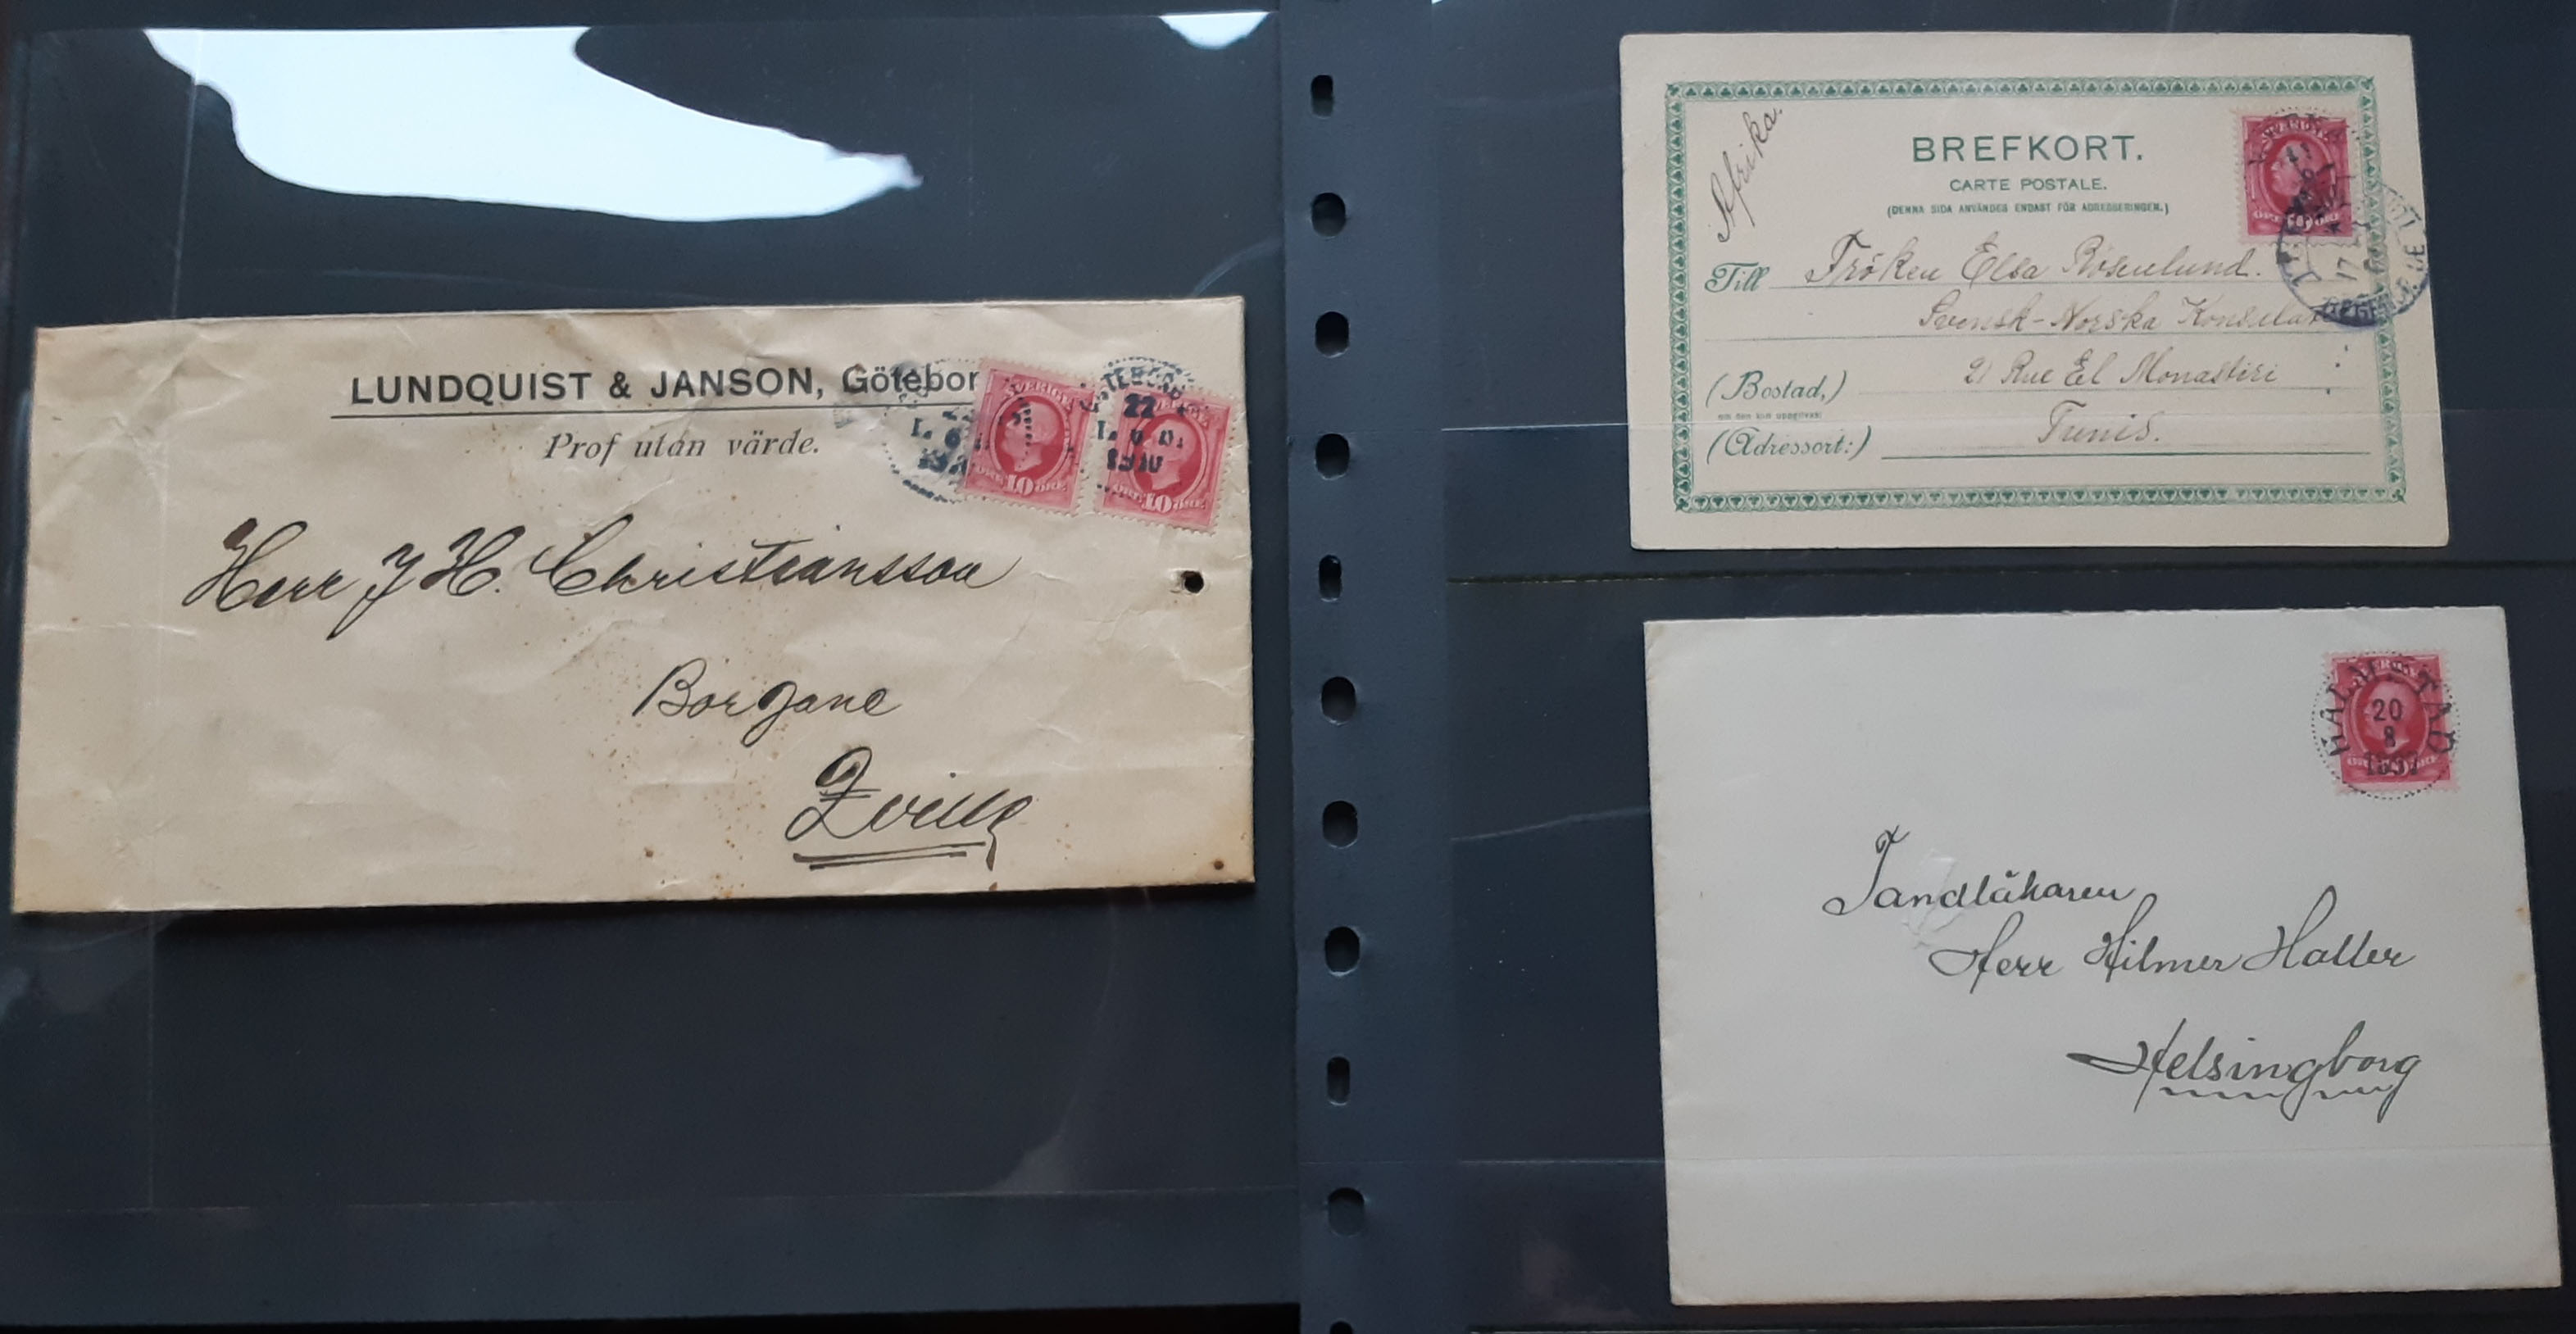 LUNDQUIST & JANSON, Götebor
Prof utan värde.
SVERIGE
10 ÖRE
GÖTEBORG
22
1. 6 0.
1910
10 ÖRE
Herr J H. Christiansson
Borgane
Afrika.
BREFKORT.
CARTE POSTALE.
(DENNA SIDA ANVÄNDES ENDAST FÖR ADRESSERINGEN.)
Till Fröken Elsa Rosenlund.
Svensk-Norska Konsulat
(Bostad,) 21 Rue El Monastiri
om den kan uppgifvas
(Adressort:) Tunis.
SVERIGE
HALMSTAD
20
8
1897
Tandläkaren
Herr Hilmer Haller
Helsingborg